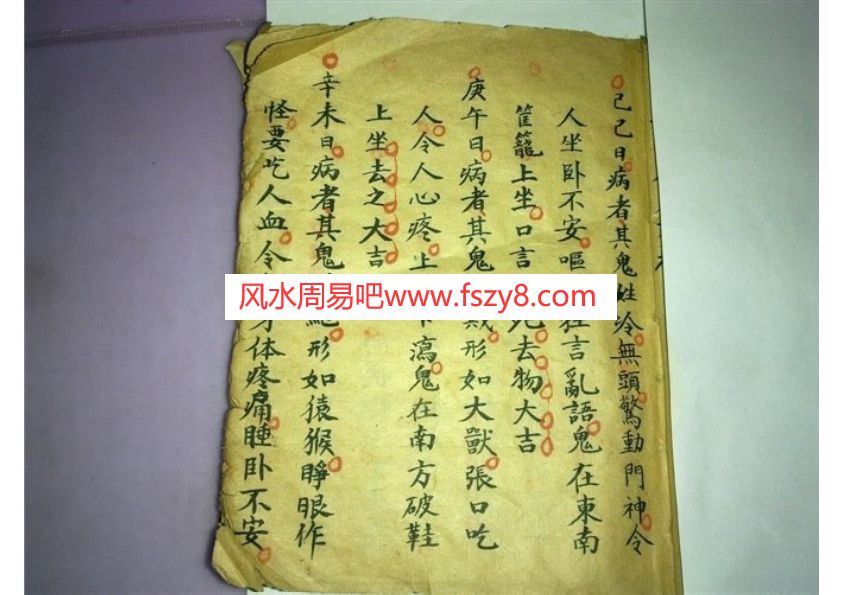 己巳日病者其鬼姓冷無頭驚動門神令
人坐卧不安嘔狂言亂語鬼在東南
筐籠上坐口言去物大吉
庚午日病者其鬼形如大獸張口吃
人令人心疼上下瀉鬼在南方破鞋
上坐去之大吉
辛未日病者其鬼形如猿猴睜眼作
怪要吃人血令身体疼痛睡卧不安
风水周易吧www.fszy8.com